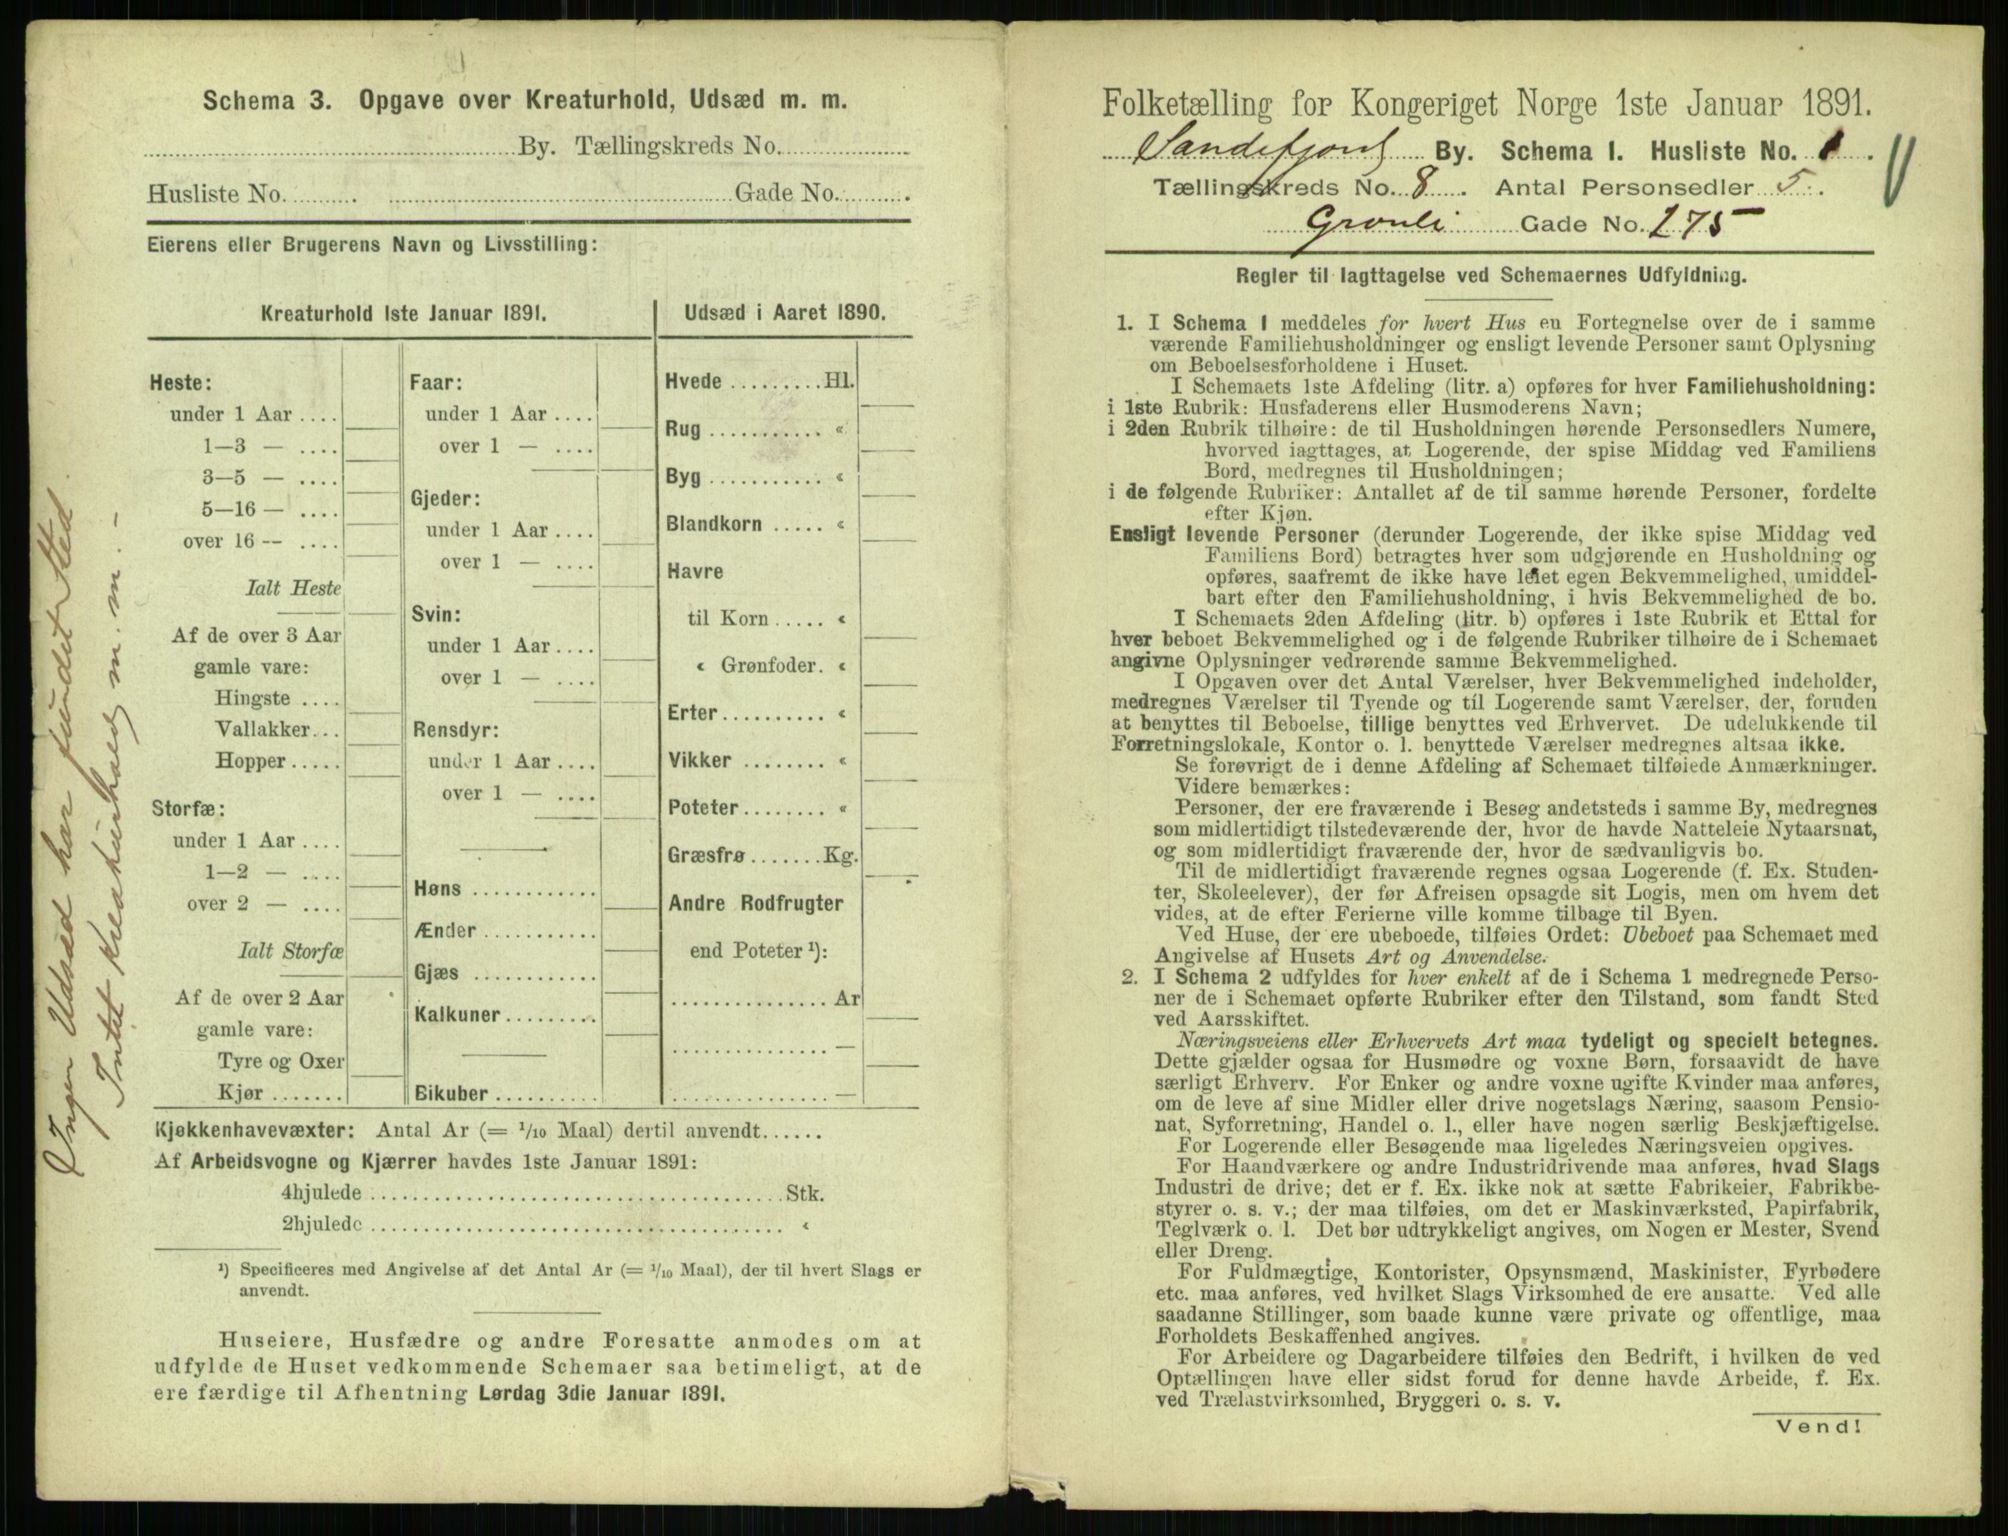 Schema 3. Opgave over Kreaturhold, Udsæd m. m.
By. Tællingskreds No.
Husliste No. Gade No.
Eierens eller Brugerens Navn og Livsstilling:
Kreaturhold 1ste Januar 1891.
Heste:
under 1 Aar ....
1—3 — ....
3—5 — ....
5—16 — ....
over 16 -- ....
Ialt Heste
Af de over 3 Aar
gamle vare:
Hingste ....
Vallakker...
Hopper .....
Storfæ:
under 1 Aar ....
1—2 — ....
over 2 — ....
Ialt Storfæ
Af de over 2 Aar
gamle vare:
Tyre og Oxer
Kjør .......
Faar:
under 1 Aar ....
over 1 — ....
Gjeder:
under 1 Aar ....
over 1 — ....
Svin:
under 1 Aar ....
over 1 — ....
Rensdyr:
under 1 Aar ....
over 1 — ....
Høns ............
Ænder ...........
Gjæs ............
Kalkuner .........
Bikuber ..........
Udsæd i Aaret 1890.
Hvede .........Hl.
Rug ........... «
Byg ........... «
Blandkorn ..... «
Havre
til Korn ..... «
« Grønfoder. «
Erter.......... «
Vikker ........ «
Poteter ........ «
Græsfrø .......Kg.
Andre Rodfrugter
end Poteter ¹):
............... Ar
............... —
............... —
Kjøkkenhavevæxter: Antal Ar (= 1/10 Maal) dertil anvendt......
Af Arbeidsvogne og Kjærrer havdes 1ste Januar 1891:
4hjulede ........................................ Stk.
2hjulede ........................................ «
¹) Specificeres med Angivelse af det Antal Ar (= 1/10 Maal), der til hvert Slags er
anvendt.
Huseiere, Husfædre og andre Foresatte anmodes om at
udfylde de Huset vedkommende Schemaer saa betimeligt, at de
ere færdige til Afhentning Lørdag 3die Januar 1891.
Ingen Udsæd har fundet Sted
Intet Kreaturhold m. m. -
Folketælling for Kongeriget Norge 1ste Januar 1891.
Sandefjord By. Schema 1. Husliste No. 1.
Tællingskreds No. 8. Antal Personsedler 5.
Gronli Gade No. 275
Regler til Iagttagelse ved Schemaernes Udfyldning.
1. I Schema 1 meddeles for hvert Hus en Fortegnelse over de i samme
værende Familiehusholdninger og ensligt levende Personer samt Oplysning
om Beboelsesforholdene i Huset.
I Schemaets 1ste Afdeling (litr. a) opføres for hver Familiehusholdning:
i 1ste Rubrik: Husfaderens eller Husmoderens Navn;
i 2den Rubrik tilhøire: de til Husholdningen hørende Personsedlers Numere,
hvorved iagttages, at Logerende, der spise Middag ved Familiens
Bord, medregnes til Husholdningen;
i de følgende Rubriker: Antallet af de til samme hørende Personer, fordelte
efter Kjøn.
Ensligt levende Personer (derunder Logerende, der ikke spise Middag ved
Familiens Bord) betragtes hver som udgjørende en Husholdning og
opføres, saafremt de ikke have leiet egen Bekvemmelighed, umiddel-
bart efter den Familiehusholdning, i hvis Bekvemmelighed de bo.
I Schemaets 2den Afdeling (litr. b) opføres i 1ste Rubrik et Ettal for
hver beboet Bekvemmelighed og i de følgende Rubriker tilhøire de i Schemaet
angivne Oplysninger vedrørende samme Bekvemmelighed.
I Opgaven over det Antal Værelser, hver Bekvemmelighed indeholder,
medregnes Værelser til Tyende og til Logerende samt Værelser, der, foruden
at benyttes til Beboelse, tillige benyttes ved Erhvervet. De udelukkende til
Forretningslokale, Kontor o. l. benyttede Værelser medregnes altsaa ikke.
Se forøvrigt de i denne Afdeling af Schemaet tilføiede Anmærkninger.
Videre bemærkes:
Personer, der ere fraværende i Besøg andetsteds i samme By, medregnes
som midlertidigt tilstedeværende der, hvor de havde Natteleie Nytaarsnat,
og som midlertidigt fraværende der, hvor de sædvanligvis bo.
Til de midlertidigt fraværende regnes ogsaa Logerende (f. Ex. Studen-
ter, Skoleelever), der før Afreisen opsagde sit Logis, men om hvem det
vides, at de efter Ferierne ville komme tilbage til Byen.
Ved Huse, der ere ubeboede, tilføies Ordet: Ubeboet paa Schemaet med
Angivelse af Husets Art og Anvendelse.
2. I Schema 2 udfyldes for hver enkelt af de i Schema 1 medregnede Perso-
ner de i Schemaet opførte Rubriker efter den Tilstand, som fandt Sted
ved Aarsskiftet.
Næringsveiens eller Erhvervets Art maa tydeligt og specielt betegnes.
Dette gjælder ogsaa for Husmødre og voxne Børn, forsaavidt de have
særligt Erhverv. For Enker og andre voxne ugifte Kvinder maa anføres,
om de leve af sine Midler eller drive nogetslags Næring, saasom Pensio-
nat, Syforretning, Handel o. l., eller have nogen særlig Beskjæftigelse.
For Logerende eller Besøgende maa ligeledes Næringsveien opgives.
For Haandværkere og andre Industridrivende maa anføres, hvad Slags
Industri de drive; det er f. Ex. ikke nok at sætte Fabrikeier, Fabrikbe-
styrer o. s. v.; der maa tilføies, om det er Maskinværksted, Papirfabrik,
Teglværk o. l. Det bør udtrykkeligt angives, om Nogen er Mester, Svend
eller Dreng.
For Fuldmægtige, Kontorister, Opsynsmænd, Maskinister, Fyrbødere
etc. maa anføres, ved hvilket Slags Virksomhed de ere ansatte. Ved alle
saadanne Stillinger, som baade kunne være private og offentlige, maa
Forholdets Beskaffenhed angives.
For Arbeidere og Dagarbeidere tilføies den Bedrift, i hvilken de ved
Optællingen have eller sidst forud for denne havde Arbeide, f. Ex.
ved Trælastvirksomhed, Bryggeri o. s. v.
Vend!